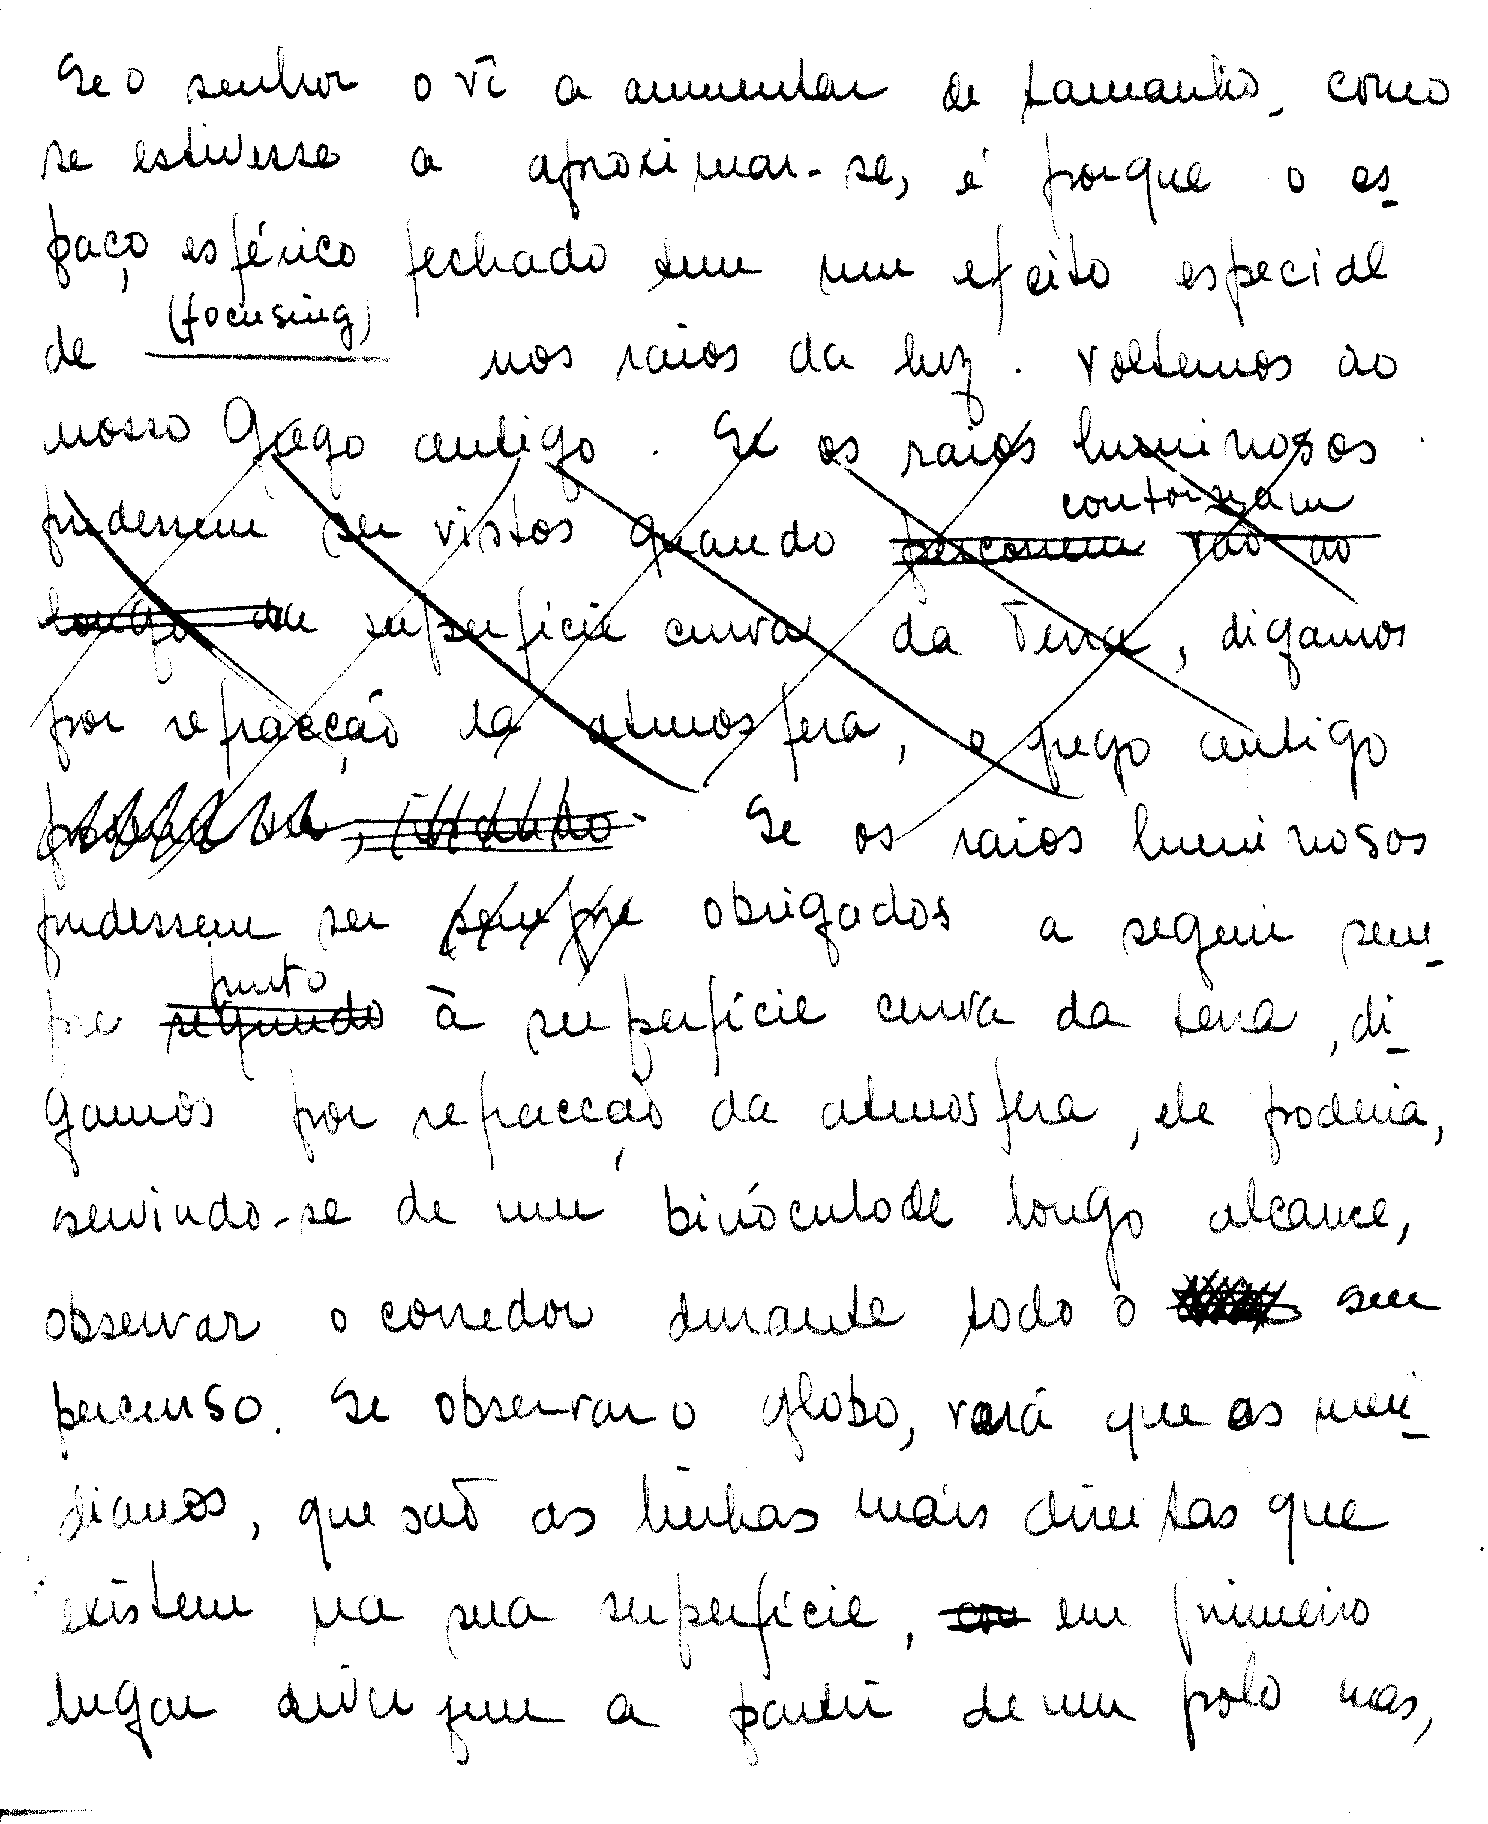 Se o senhor o vî a aumentar de tamanho, como
se estivesse a aproximar-se, é porque o es-
paço esférico fechado tem um efeito especial
de (focusing) nos raios da luz. Voltemos ao
nosso Grego antigo. Se os raios luminosos
pudessem ser vistos quando percorrem contornam vão ao
longo da superfície curva da Terra, digamos
por refracção da atmosfera, o grego antigo
Se os raios luminosos
pudessem ser sempre obrigados a seguir sem-
pre segundo junto à superfície curva da terra, di-
gamos por refracção da atmosfera, ele poderia,
servindo-se de um binóculo de longo alcance,
observar o corredor durante todo o seu
percurso. Se observar o globo, verá que os meri-
dianos, que são as linhas mais direitas que
existem na sua superfície, com em primeiro
lugar divergem a partir de um polo mas,